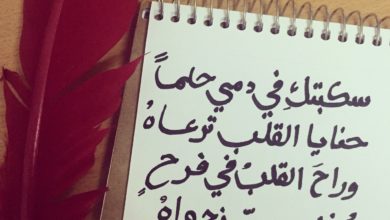 سكبتكِ في دمي حلماً
حنايا القلب ترعاهُ
وراحَ القلبُ في فرحٍ
نجواهُ